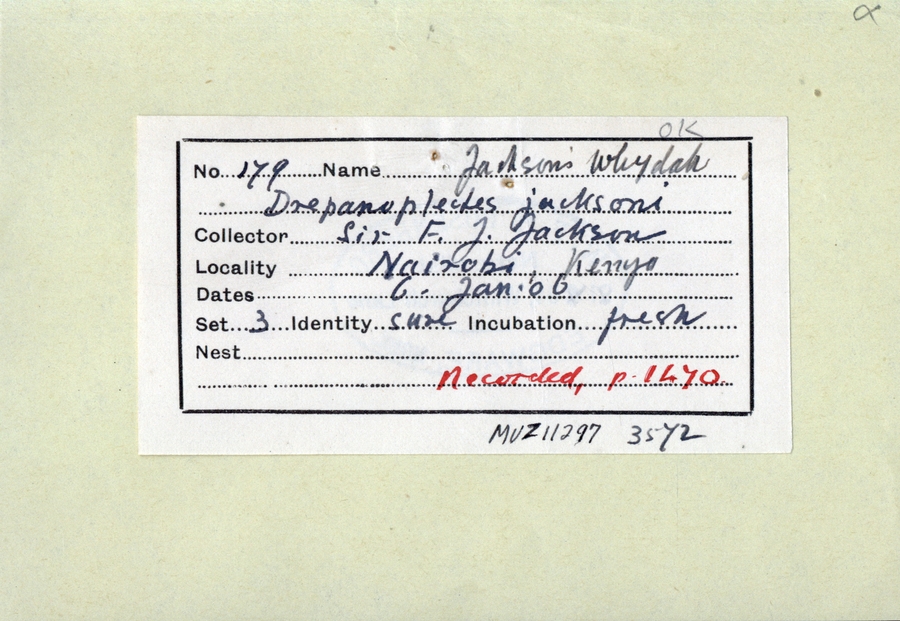 OK
No. 179 Name Jackson's Whydah
Drepanoplectes jacksoni
Collector Sir F. J. Jackson
Locality Nairobi, Kenya
Dates 6. Jan: 06
Set 3 Identity sure Incubation fresh
Nest
Recorded, p. 1470.
MVZ11297 3572